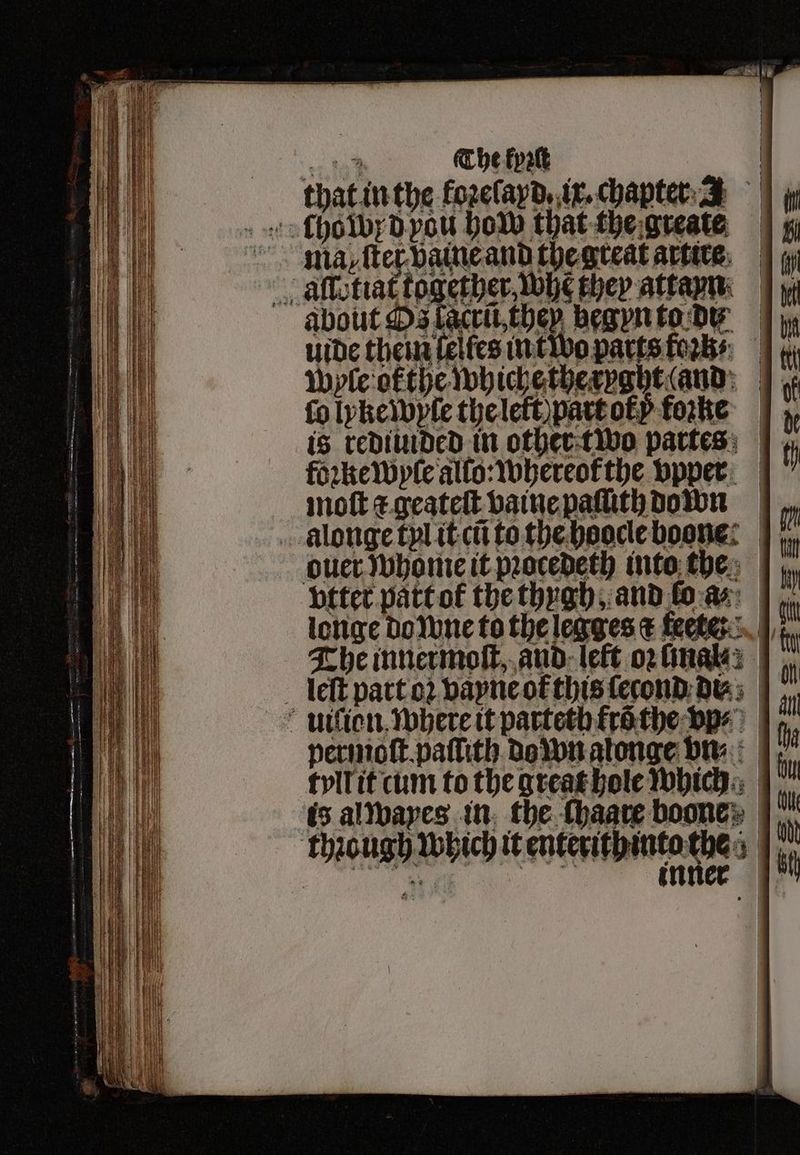 The fyrst
that in the foresayd .ix. chapter. I
showyd you how that the greate
mayster vaine and the great artire
assotiat together, whē they attayn
about Os sacru, they begyn to de-
uide them selfes in two parts forke
wyse of the which the ryght (and
so lykewyse the left) part of þͤ forke
is rediuided in other two partes
forke wyse also: wherof the vpper
most & geatest vaine passith down
alonge tyl it cū to the hoocle boone:
ouer whome it procedeth into the
vtter part of the thygh, and so a-
longe downe to the legges & feete:
The innermost, and left or smal-
lest part or vayne of this second de-
uision, where it parteth frō the vp-
permost, passith down alonge vn-
tyll it cum to the great hole which
is alwayes in the shaare boone,
through which it enterith into the
inner